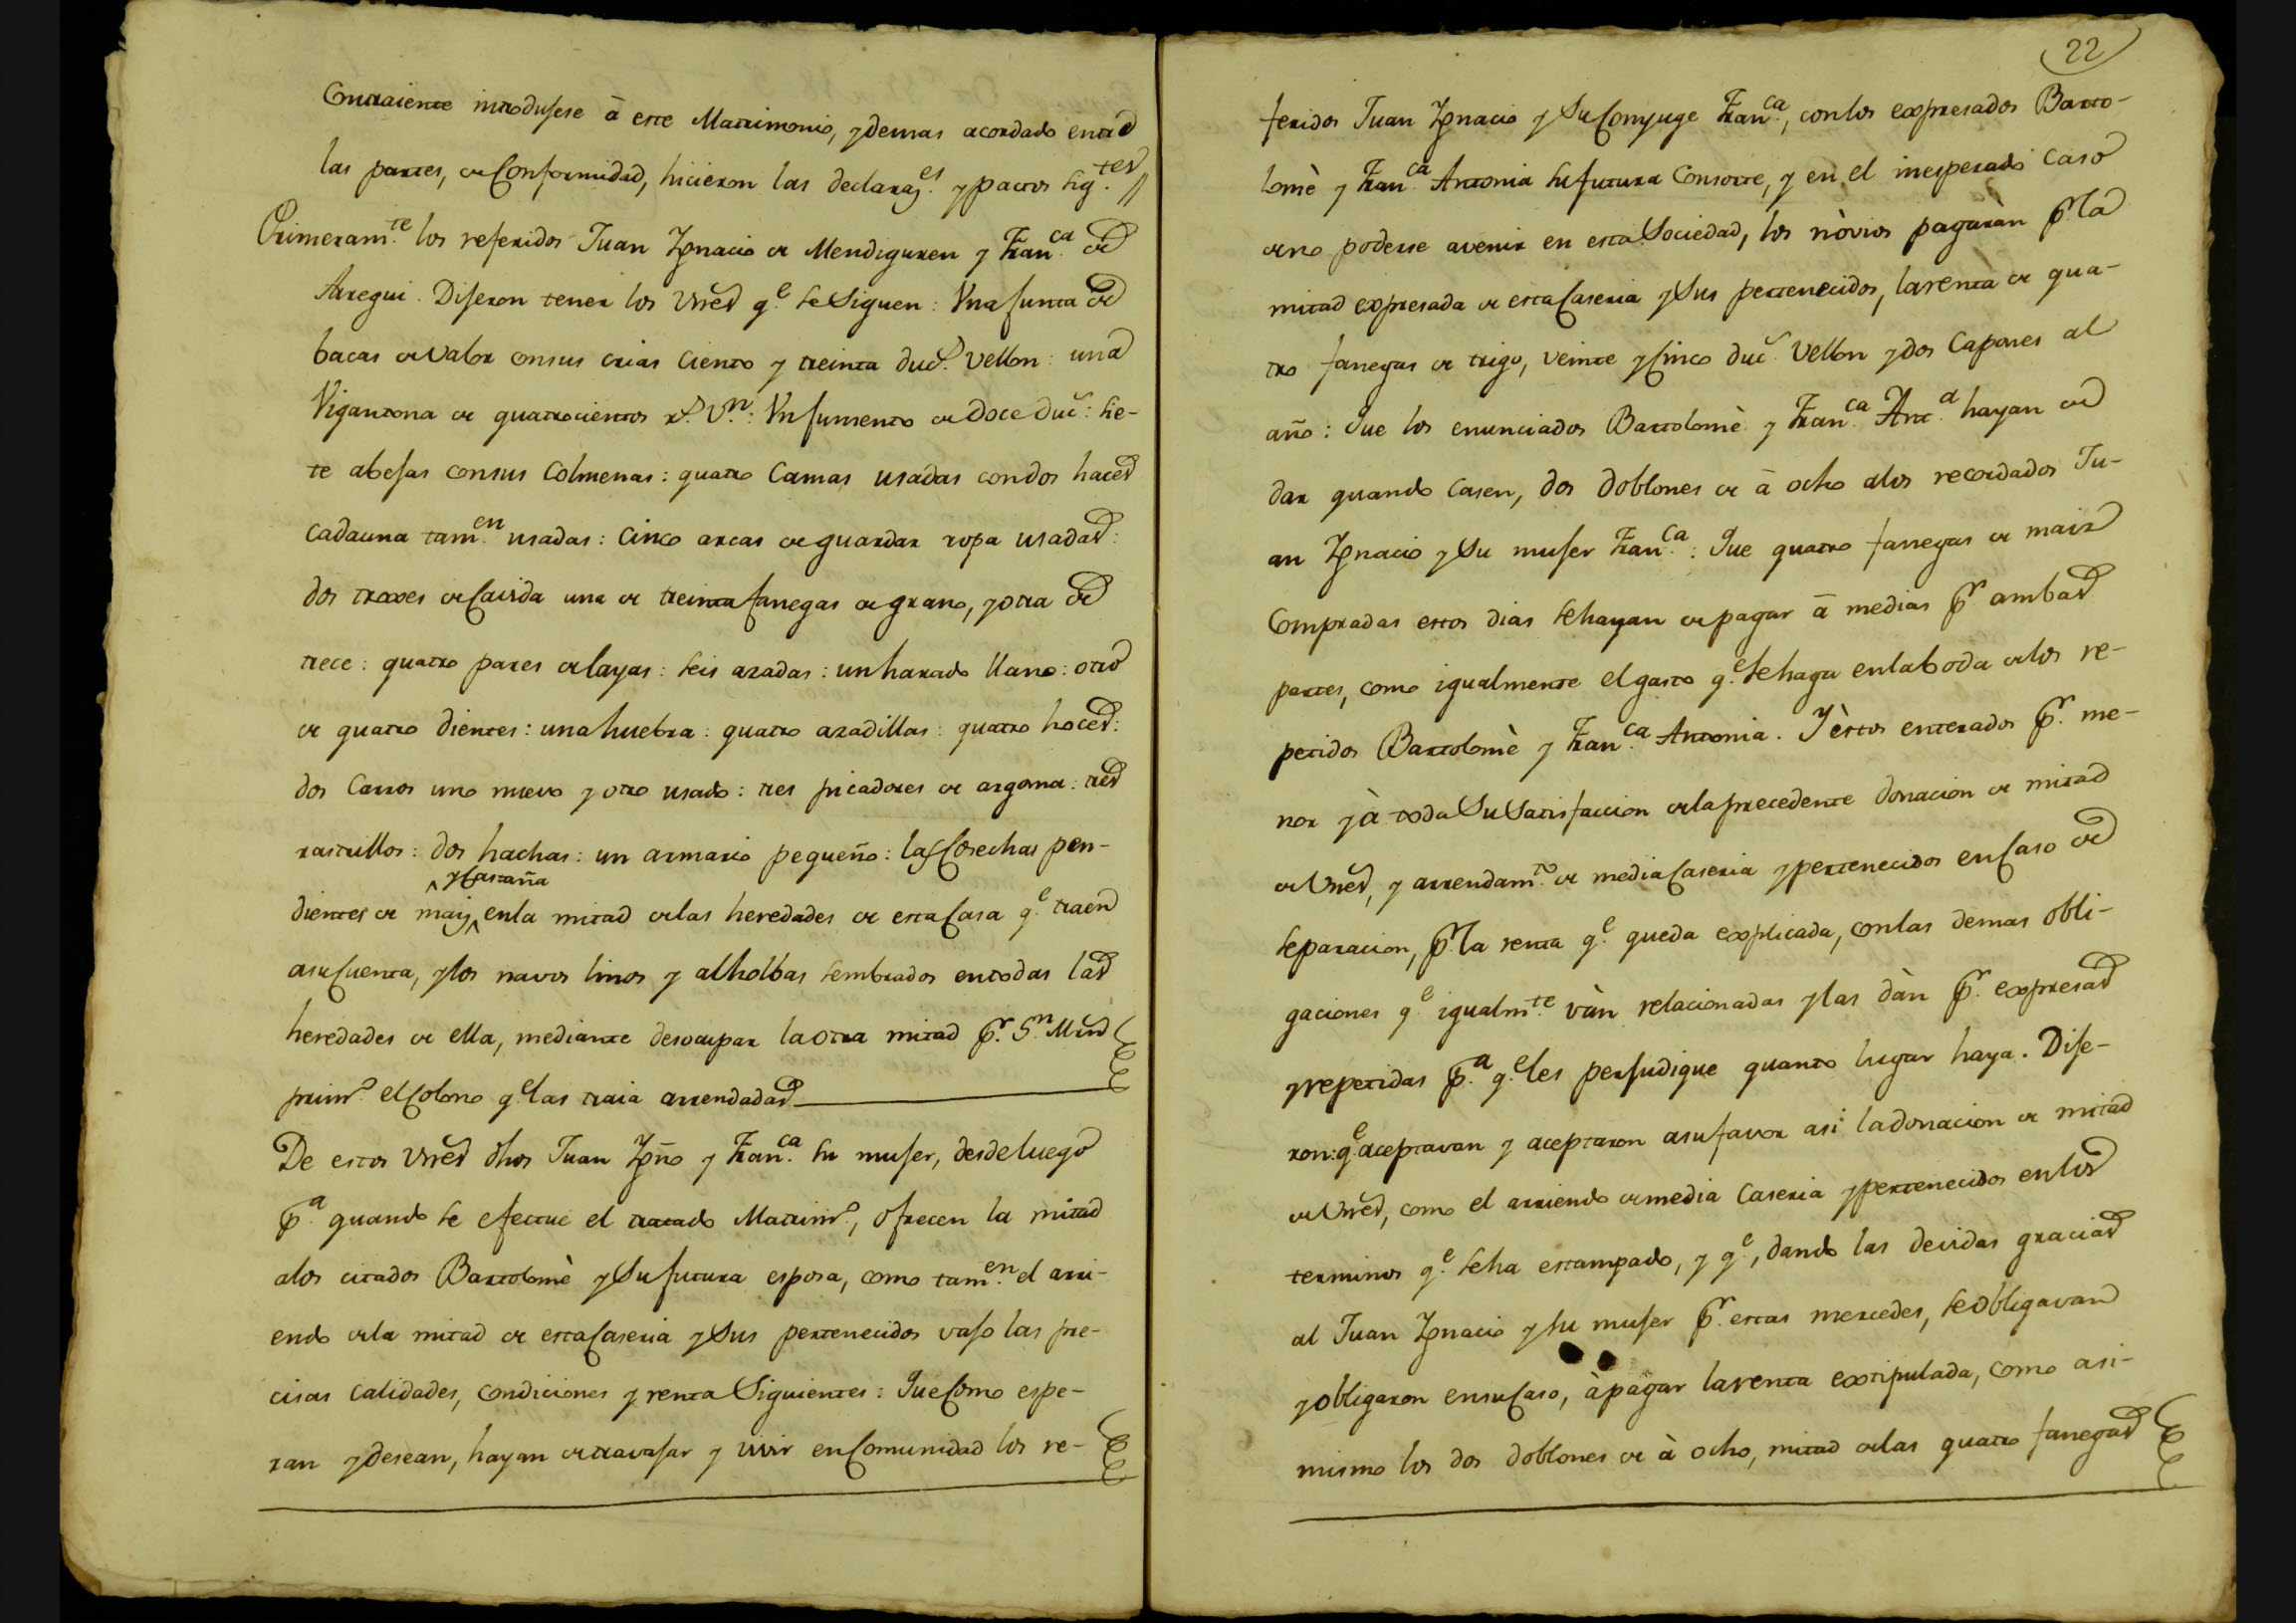 Contraiente introdujese â este Matrimonio, y demas acordado entre
las partes, de Conformidad, hicieron las declaraç.es y pactos sig.tes //
Primeram.te los referidos Juan Ygnacio de Mendiguren y Fran.ca de
Arregui. Dijeron tener los vnes q.e se Siguen: Vna junta de
bacas de valor con sus crias ciento y treinta duc.s vellon: una
Vigantona de quatrocientos r.s V.n: Vn jumento de doce duc.s: sie-
te abejas con sus Colmenas: quatro Camas usadas con dos haces
cada una tam.en usadas: Cinco arcas de guardar ropa usadas:
dos troxes de Cavida una de treinta fanegas de grano, y otra de
trece: quatro pares de layas: seis azadas: un harado llano: otro
de quatro dientes: una huebra: quatro azadillas: quatro hoces:
dos Carros uno nuevo y otro usado: tres picadores de argoma: tres
rastrillos: dos hachas: un armario pequeño: las Cosechas pen-
y Castaña
dientes de maiz en la mitad de las heredades de esta Casa q.e traen
a su Cuenta, y los navos linos y alholbas sembrados en todas las
heredades de ella, mediante desocupar la otra mitad p.r S.n Mrn
prim.o el Colono q.e las traia arrendadas
De estos vnes dhos Juan Ygn.o y Fran.ca su mujer, desde luego
p.a quando se efectue el tratado Matrim.o, ofrecen la mitad
a los citados Bartolomè y Su futura esposa, como tam.en el arri-
endo de la mitad de esta Caseria y Sus pertenecidos vajo las pre-
cisas Calidades, condiciones y renta Siguientes: Que Como espe-
ran y desean, hayan de travajar y vivir en Comunidad los re-
22
feridos Juan Ygnacio y Su Conyuge Fran.ca, con los expresados Barto-
lomè y Fran.ca Antonia su futura Consorte, y en el inesperado Caso
de no poderse avenir en esta Sociedad, los nòvios pagaràn p.r la
mitad expresada de esta Caseria y Sus pertenecidos, la renta de qua-
tro fanegas de trigo, veinte y Cinco duc.s Vellon y dos Capones al
año: Que los enunciados Bartolomè y Fran.ca Ant.a hayan de
dar quando Casen, dos doblones de â ocho a los recordados Ju-
an Ygnacio y Su mujer Fran.ca: Que quatro fanegas de maiz
Compradas estos dias se hayan de pagar â medias p.r ambas
partes, como igualmente el gasto q.e se haga en la boda de los re-
petidos Bartolomè y Fran.ca Antonia. Y èstos enterados p.r me-
nor y à toda Su Satisfaccion de la precedente donacion de mitad
de vnes, y arrendam.to de media Caseria y pertenecidos en Caso de
separacion, p.r la renta q.e queda explicada, con las demas obli-
gaciones q.e igualm.te vàn relacionadas y las dàn p.r expresas
y repetidas p.a q.e les perjudique quanto lugar haya. Dije-
ron: q.e aceptavan y aceptaron a su favor asi la donacion de mitad
de vnes, como el arriendo de media Caseria y pertenecidos en los
terminos q.e se ha estampado, y q.e, dando las devidas gracias
al Juan Ygnacio y su mujer p.r estas mercedes, se obligavan
y obligaron en su Caso, à pagar la renta extipulada, como asi-
mismo los dos doblones de à ocho, mitad de las quatro fanegas